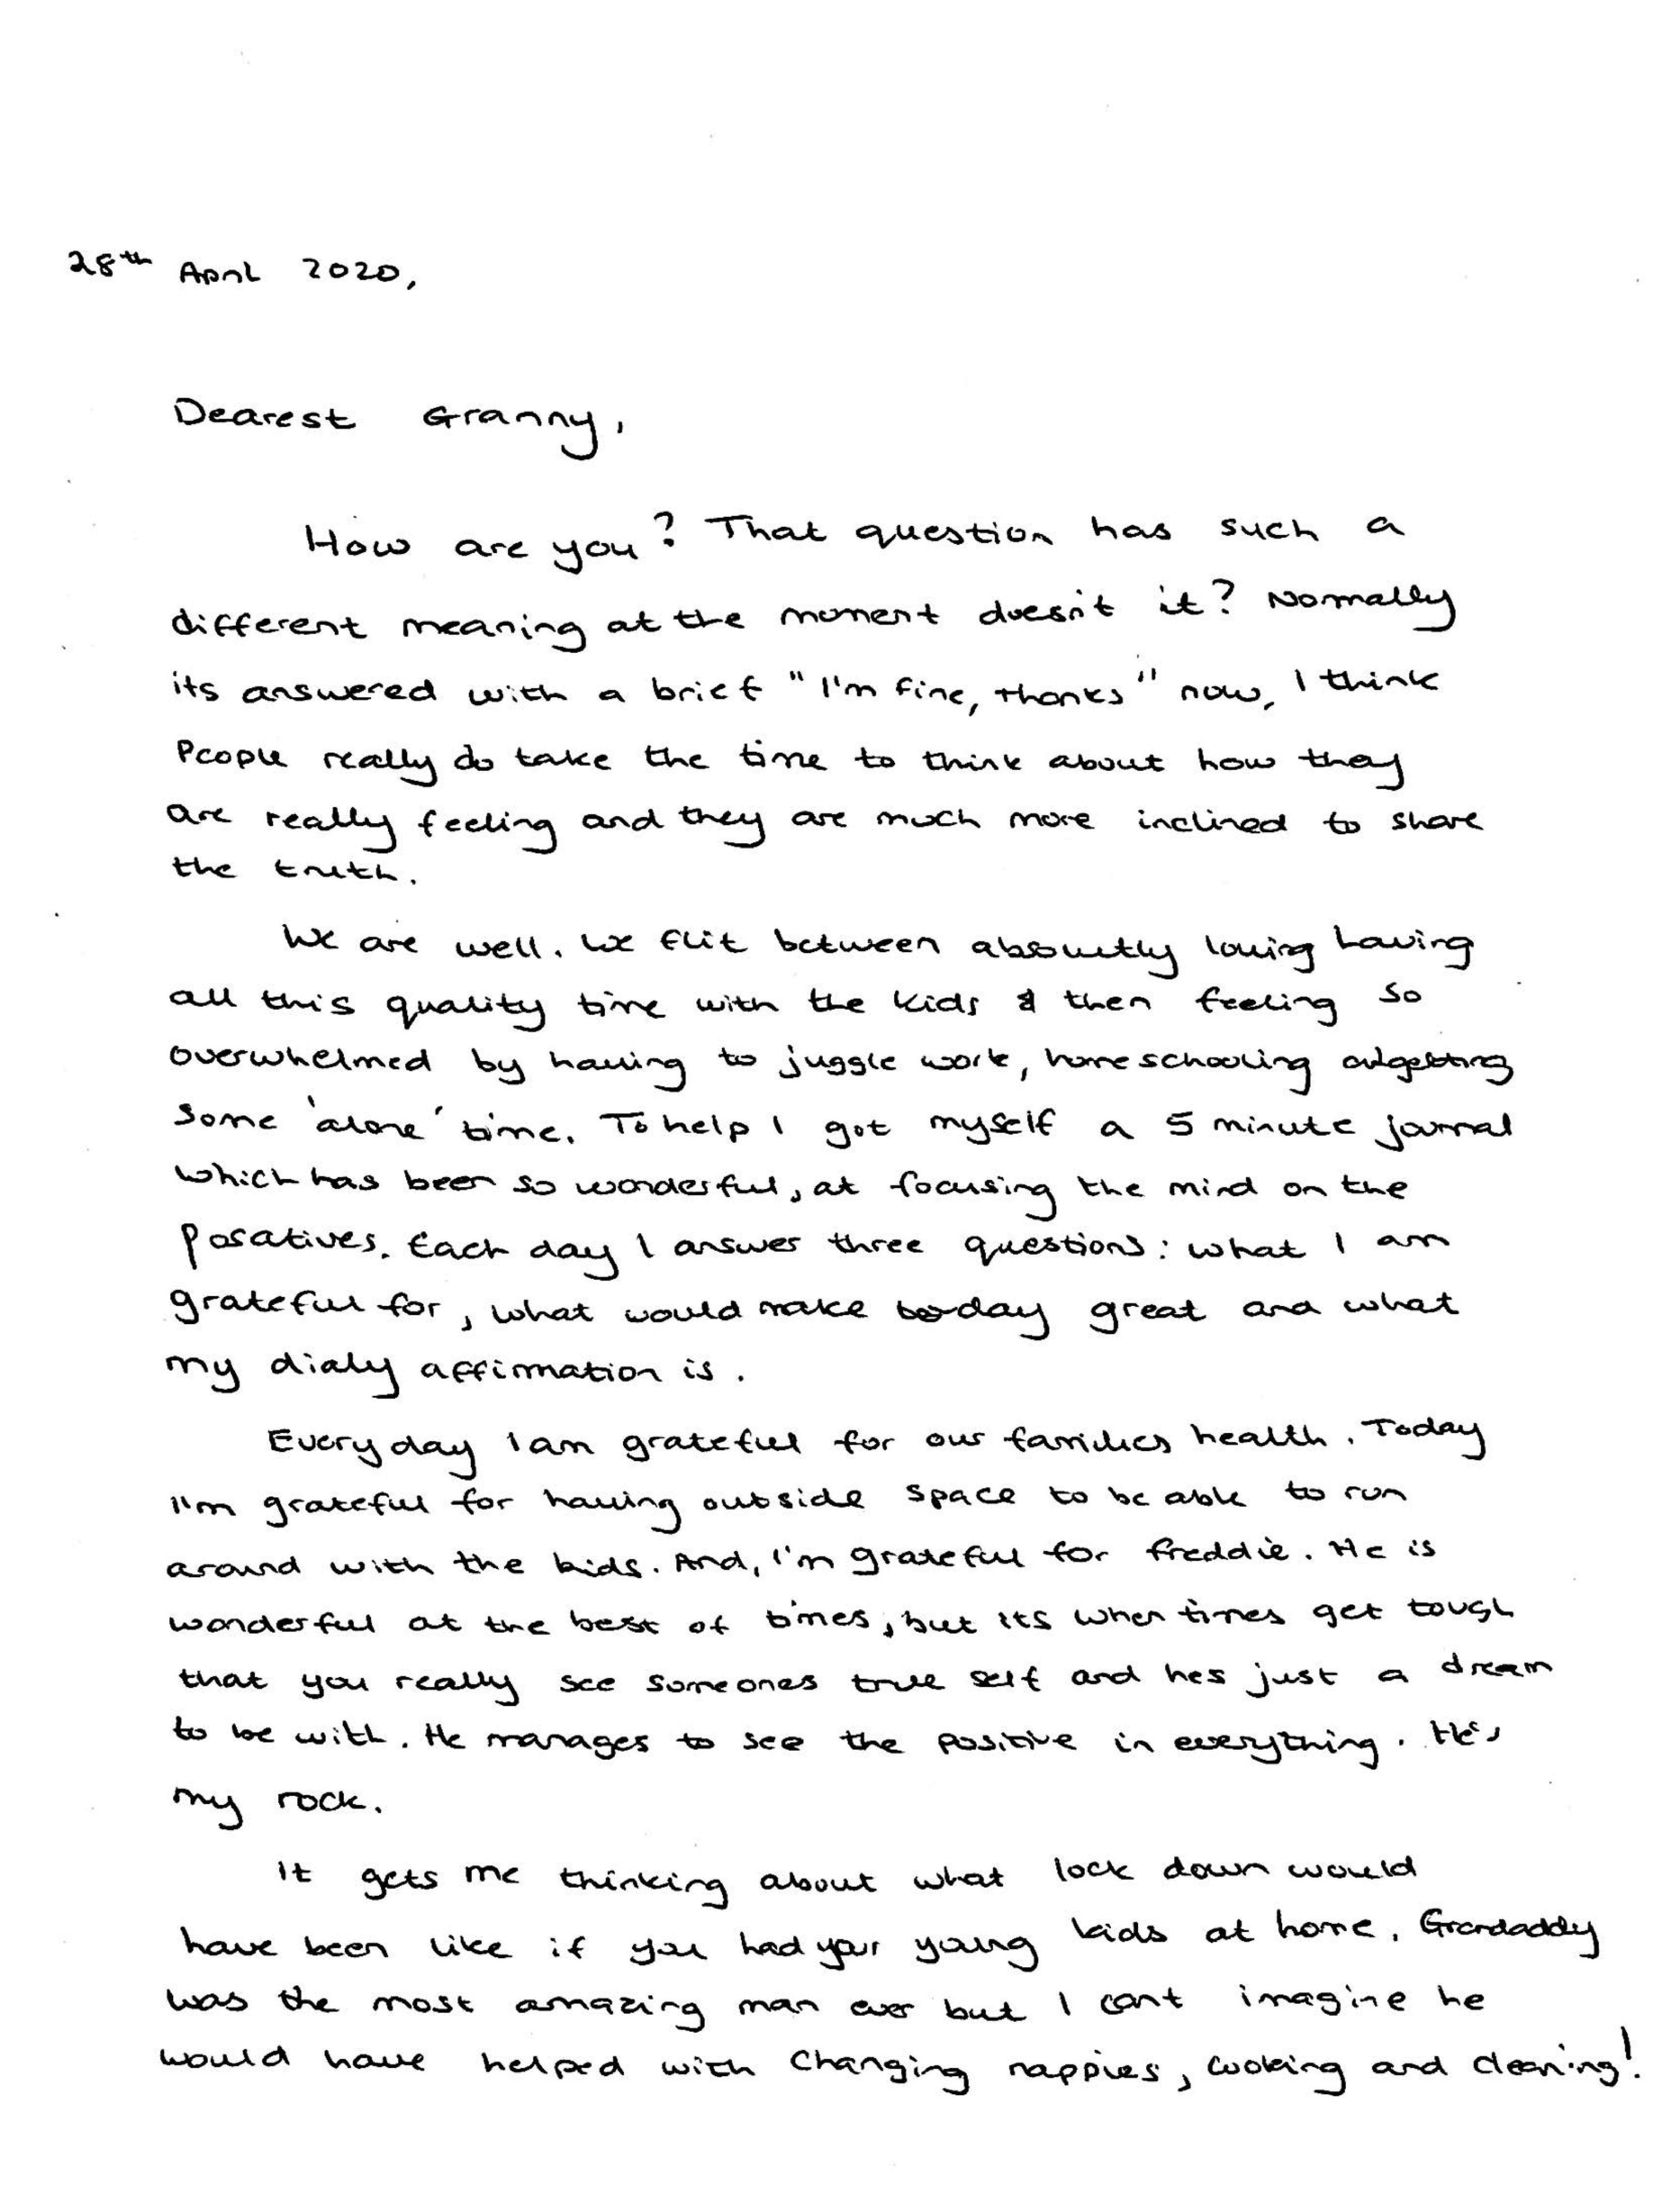 28th April 2020,
Dearest Granny,
How are you? That question has such a
different meaning at the moment doesn't it? Normally
its answered with a brief "I'm fine, thanks" now, I think
People really do take the time to think about how they
are really feeling and they are much more inclined to share
the truth.
We are well. We flit between absoultly loving having
all this quality time with the kids & then feeling so
overwhelmed by having to juggle work, homeschooling and getting
some 'alone' time. To help I got myself a 5 minute journal
which has been so wonderful, at focusing the mind on the
posatives. Each day I answer three questions: what I am
grateful for, what would make to-day great and what
my dialy affirmation is.
Everyday I am grateful for our families health. Today
I'm grateful for having outside space to be able to run
around with the kids. And, I'm grateful for Freddie. He is
wonderful at the best of times, but its when times get tough
that you really see someones true self and hes just a dream
to be with. He manages to see the positive in everything. He's
my rock.
It gets me thinking about what lock down would
have been like if you had your young kids at home. Grandaddy
was the most amazing man ever but I cant imagine he
would have helped with changing nappies, cooking and cleaning!